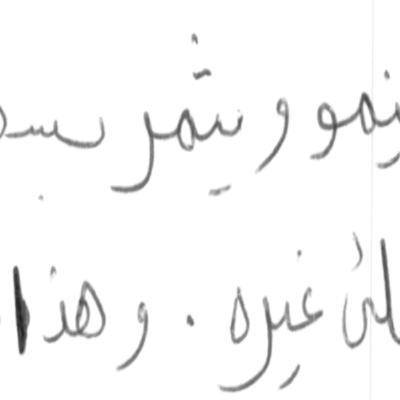 ينمو ويثمر بسـ
على غيره . وهذا